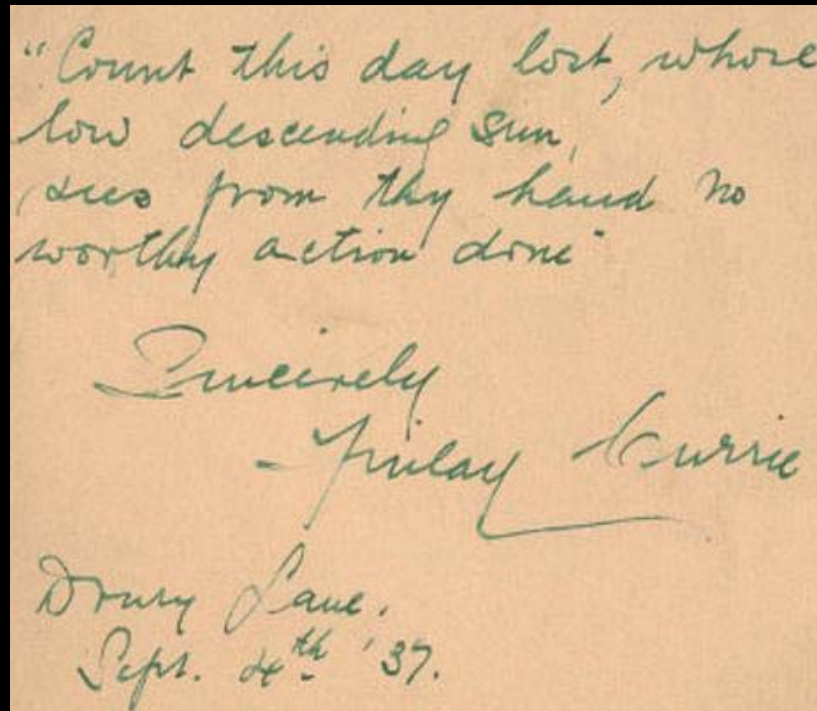 "Count this day lost, whose
low descending sun,
sees from thy hand no
worthy action done"
Sincerely
Finlay Currie
Drury Lane.
Sept. 4th '37.